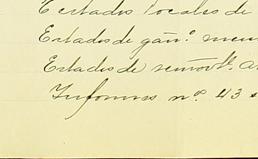 Estados locales de
Estados de gan.º men
Estados de
Informes nº. 43